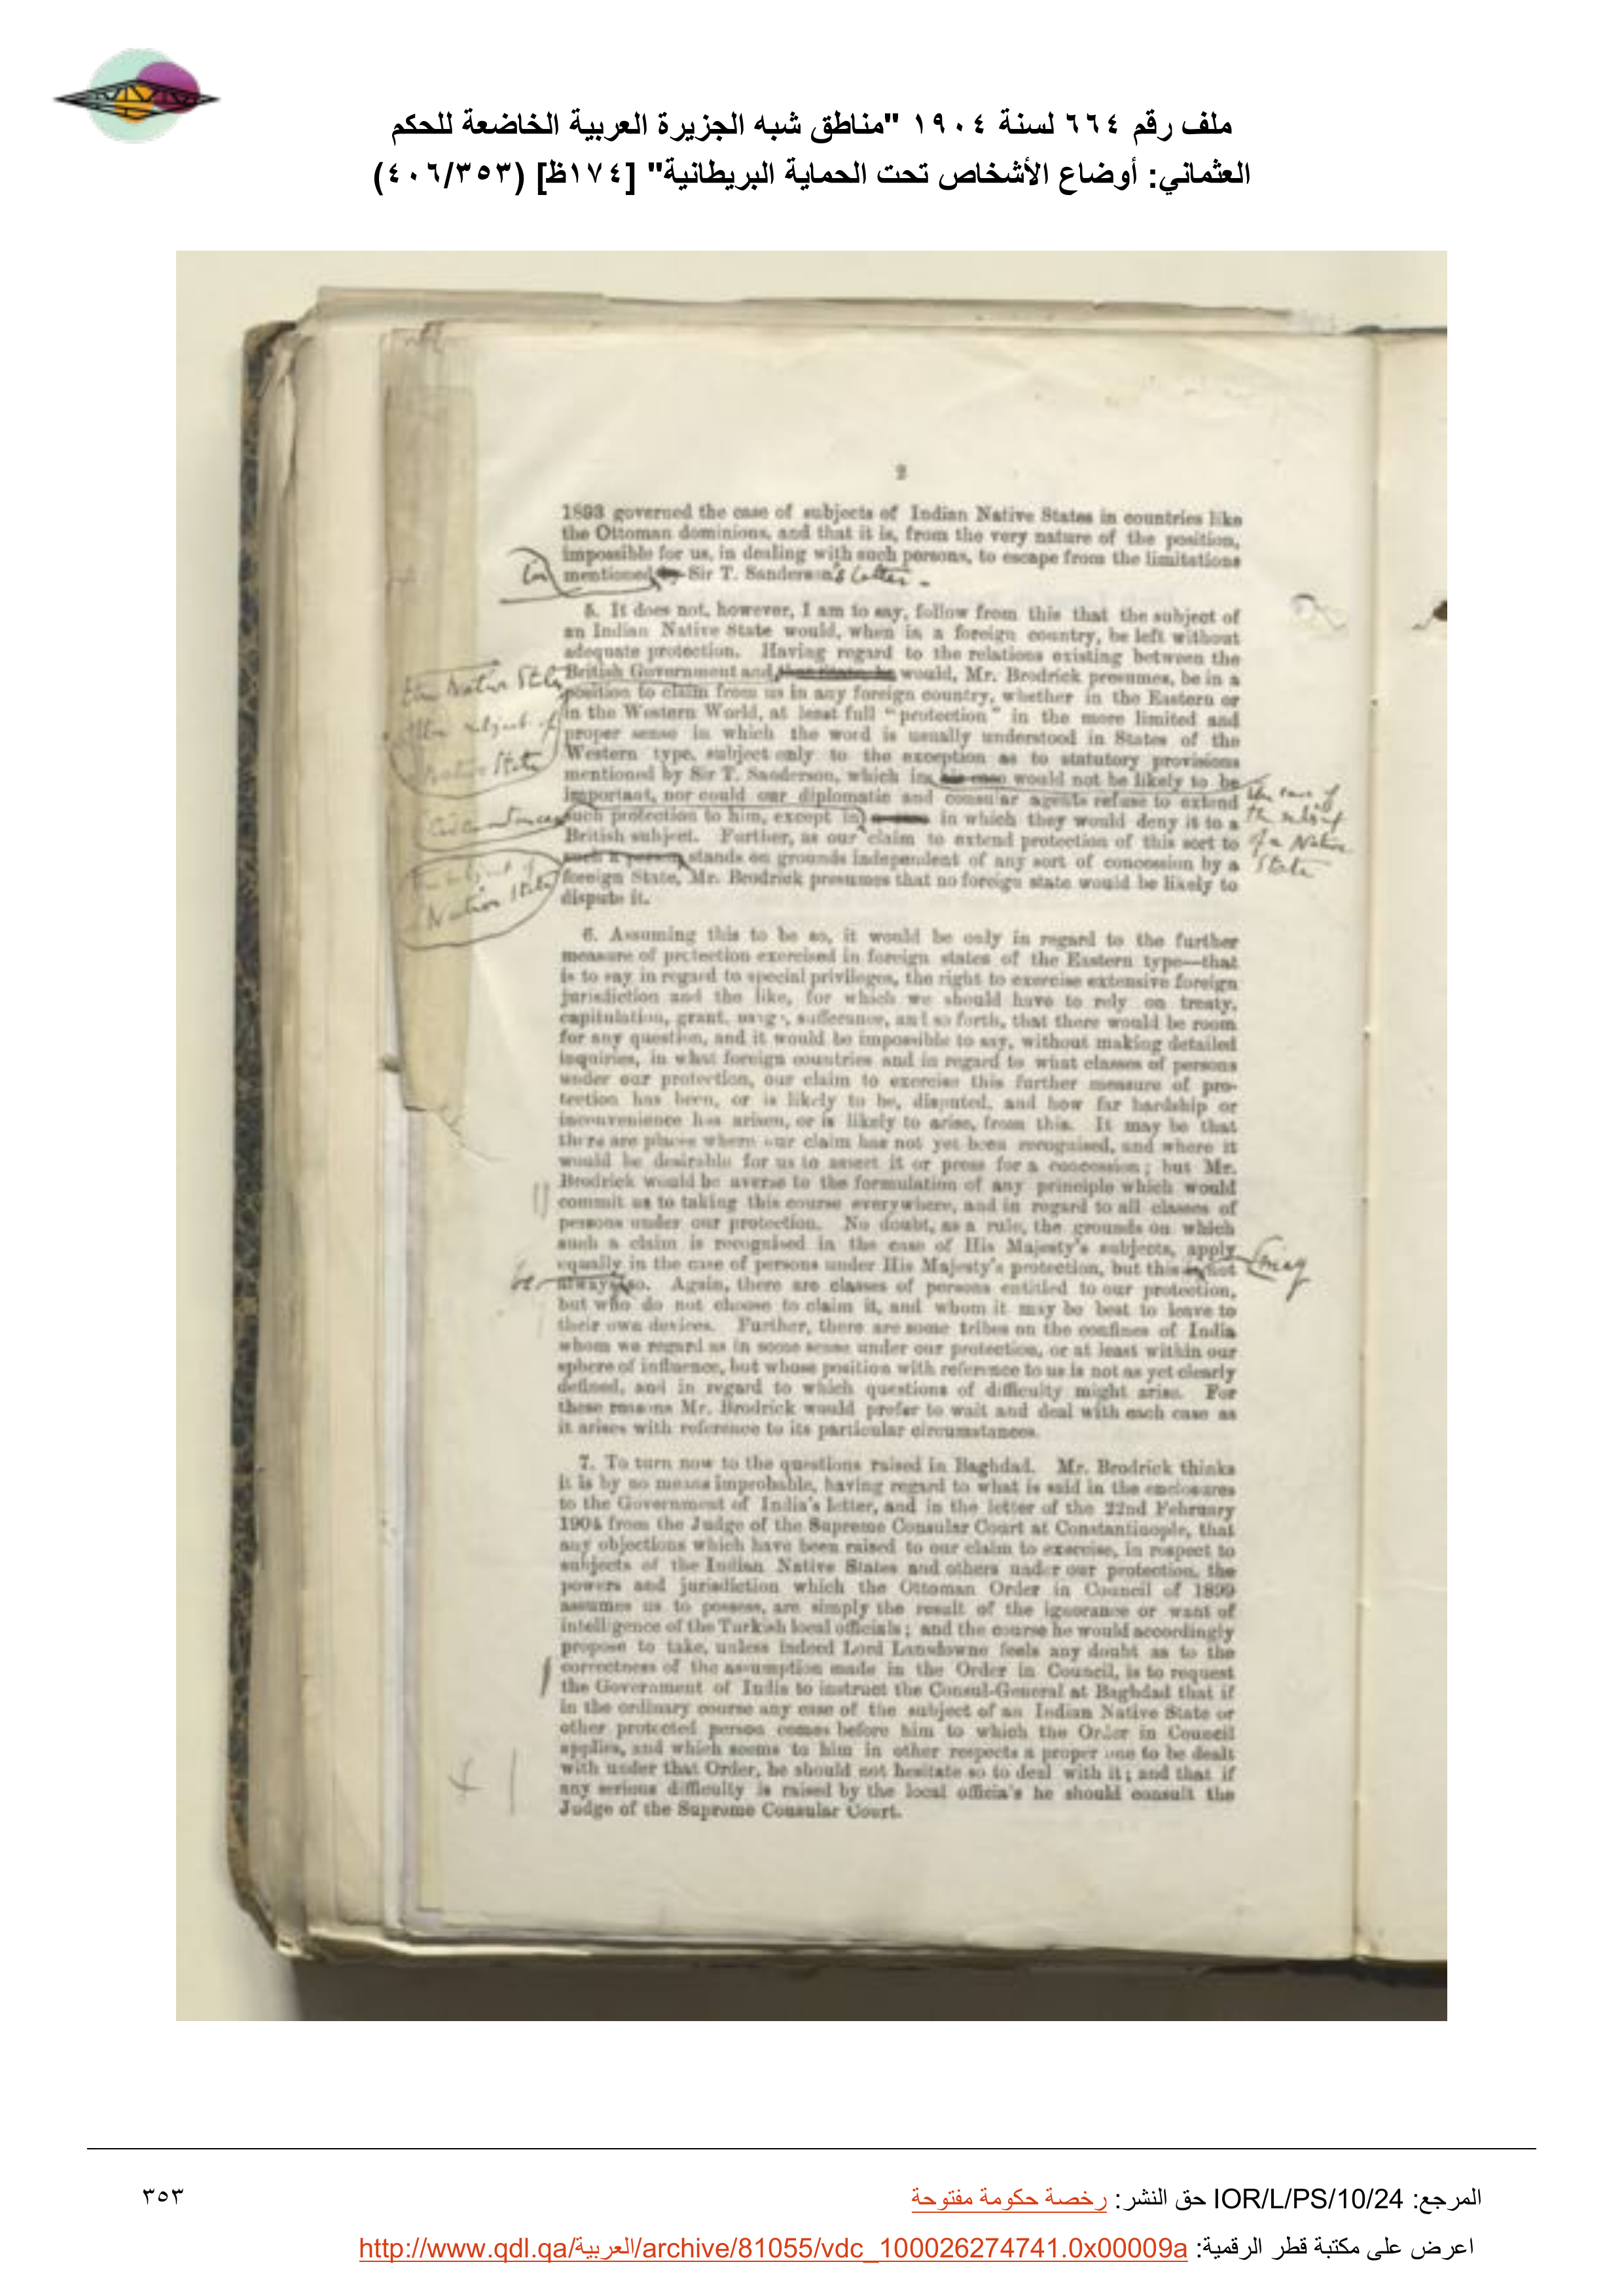 ملف رقم ٦٦٤ لسنة ١٩٠٤ "مناطق شبه الجزيرة العربية الخاضعة للحكم
العثماني: أوضاع الأشخاص تحت الحماية البريطانية" [١٧٤ظ] (٤٠٦/٣٥٣)
2
1893 governed the case of subjects of Indian Native States in countries like
the Ottoman dominions, and that it is, from the very nature of the position,
impossible for us, in dealing with such persons, to escape from the limitations
in mentioned by Sir T. Sanderson's letter.
5. It does not, however, I am to say, follow from this that the subject of
an Indian Native State would, when in a foreign country, be left without
adequate protection. Having regard to the relations existing between the
the Native State British Government and would, Mr. Brodrick presumes, be in a
position to claim from us in any foreign country, whether in the Eastern or
the subject of in the Western World, at least full "protection" in the more limited and
proper sense in which the word is usually understood in States of the
Native State Western type, subject only to the exception as to statutory provisions
mentioned by Sir T. Sanderson, which in his case would not be likely to be the case of
important, nor could our diplomatic and consular agents refuse to extend the subject
circumstances such protection to him, except in in which they would deny it to a of a Native
British subject. Further, as our claim to extend protection of this sort to State
the subject of such a person stands on grounds independent of any sort of concession by a
Native State foreign State, Mr. Brodrick presumes that no foreign state would be likely to
dispute it.
6. Assuming this to be so, it would be only in regard to the further
measure of protection exercised in foreign states of the Eastern type—that
is to say in regard to special privileges, the right to exercise extensive foreign
jurisdiction and the like, for which we should have to rely on treaty,
capitulation, grant, usage, sufferance, and so forth, that there would be room
for any question, and it would be impossible to say, without making detailed
inquiries, in what foreign countries and in regard to what classes of persons
under our protection, our claim to exercise this further measure of pro-
tection has been, or is likely to be, disputed, and how far hardship or
inconvenience has arisen, or is likely to arise, from this. It may be that
there are places where our claim has not yet been recognised, and where it
would be desirable for us to assert it or press for a concession; but Mr.
Brodrick would be averse to the formulation of any principle which would
commit us to taking this course everywhere, and in regard to all classes of
persons under our protection. No doubt, as a rule, the grounds on which
such a claim is recognised in the case of His Majesty's subjects, apply
equally in the case of persons under His Majesty's protection, but this is not may
be always so. Again, there are classes of persons entitled to our protection,
but who do not choose to claim it, and whom it may be best to leave to
their own devices. Further, there are some tribes on the confines of India
whom we regard as in some sense under our protection, or at least within our
sphere of influence, but whose position with reference to us is not as yet clearly
defined, and in regard to which questions of difficulty might arise. For
these reasons Mr. Brodrick would prefer to wait and deal with each case as
it arises with reference to its particular circumstances.
7. To turn now to the questions raised in Baghdad. Mr. Brodrick thinks
it is by no means improbable, having regard to what is said in the enclosures
to the Government of India's letter, and in the letter of the 22nd February
1904 from the Judge of the Supreme Consular Court at Constantinople, that
any objections which have been raised to our claim to exercise, in respect to
subjects of the Indian Native States and others under our protection, the
powers and jurisdiction which the Ottoman Order in Council of 1899
assumes us to possess, are simply the result of the ignorance or want of
intelligence of the Turkish local officials; and the course he would accordingly
propose to take, unless indeed Lord Lansdowne feels any doubt as to the
correctness of the assumption made in the Order in Council, is to request
the Government of India to instruct the Consul-General at Baghdad that if
in the ordinary course any case of the subject of an Indian Native State or
other protected person comes before him to which the Order in Council
applies, and which seems to him in other respects a proper one to be dealt
with under that Order, he should not hesitate so to deal with it; and that if
any serious difficulty is raised by the local officials he should consult the
Judge of the Supreme Consular Court.
المرجع: IOR/L/PS/10/24 حق النشر: رخصة حكومة مفتوحة
٣٥٣
اعرض على مكتبة قطر الرقمية: http://www.qdl.qa/العربية/archive/81055/vdc_100026274741.0x00009a